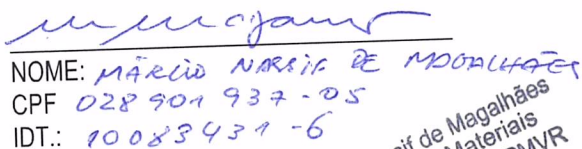 NOME: MÁRCIO NASSIF DE MAGALHÃES
CPF 028 901 937-05
IDT.: 10083431-6
if de Magalhães
Materiais
PMVR